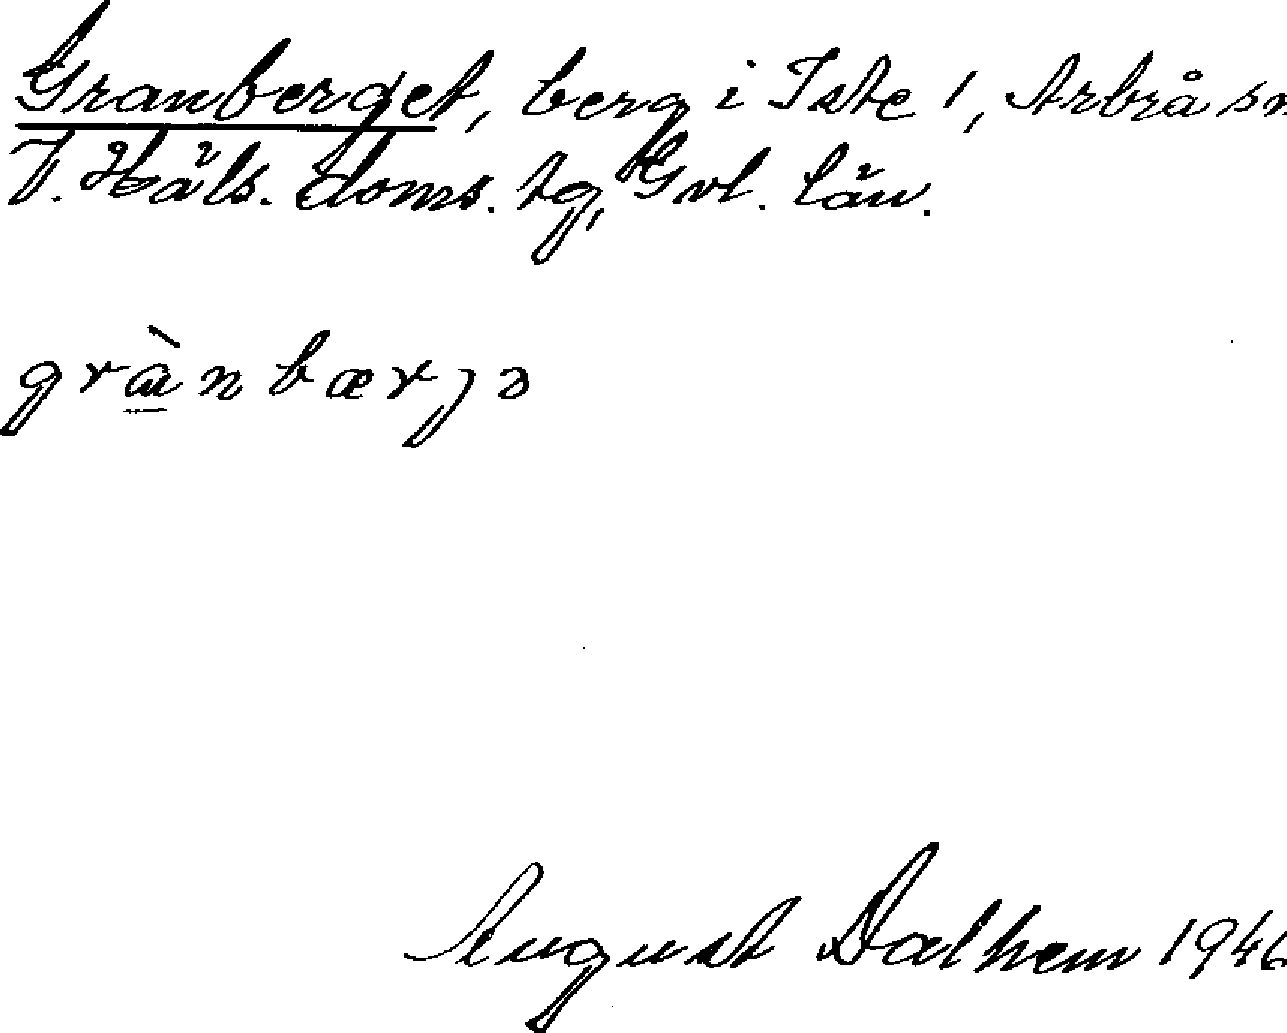 Granberget, berg i Iste 1, Arbrå sn
V. Häls. doms. tg, Gvl. län.
grànbærjə
August Dalhem 1946